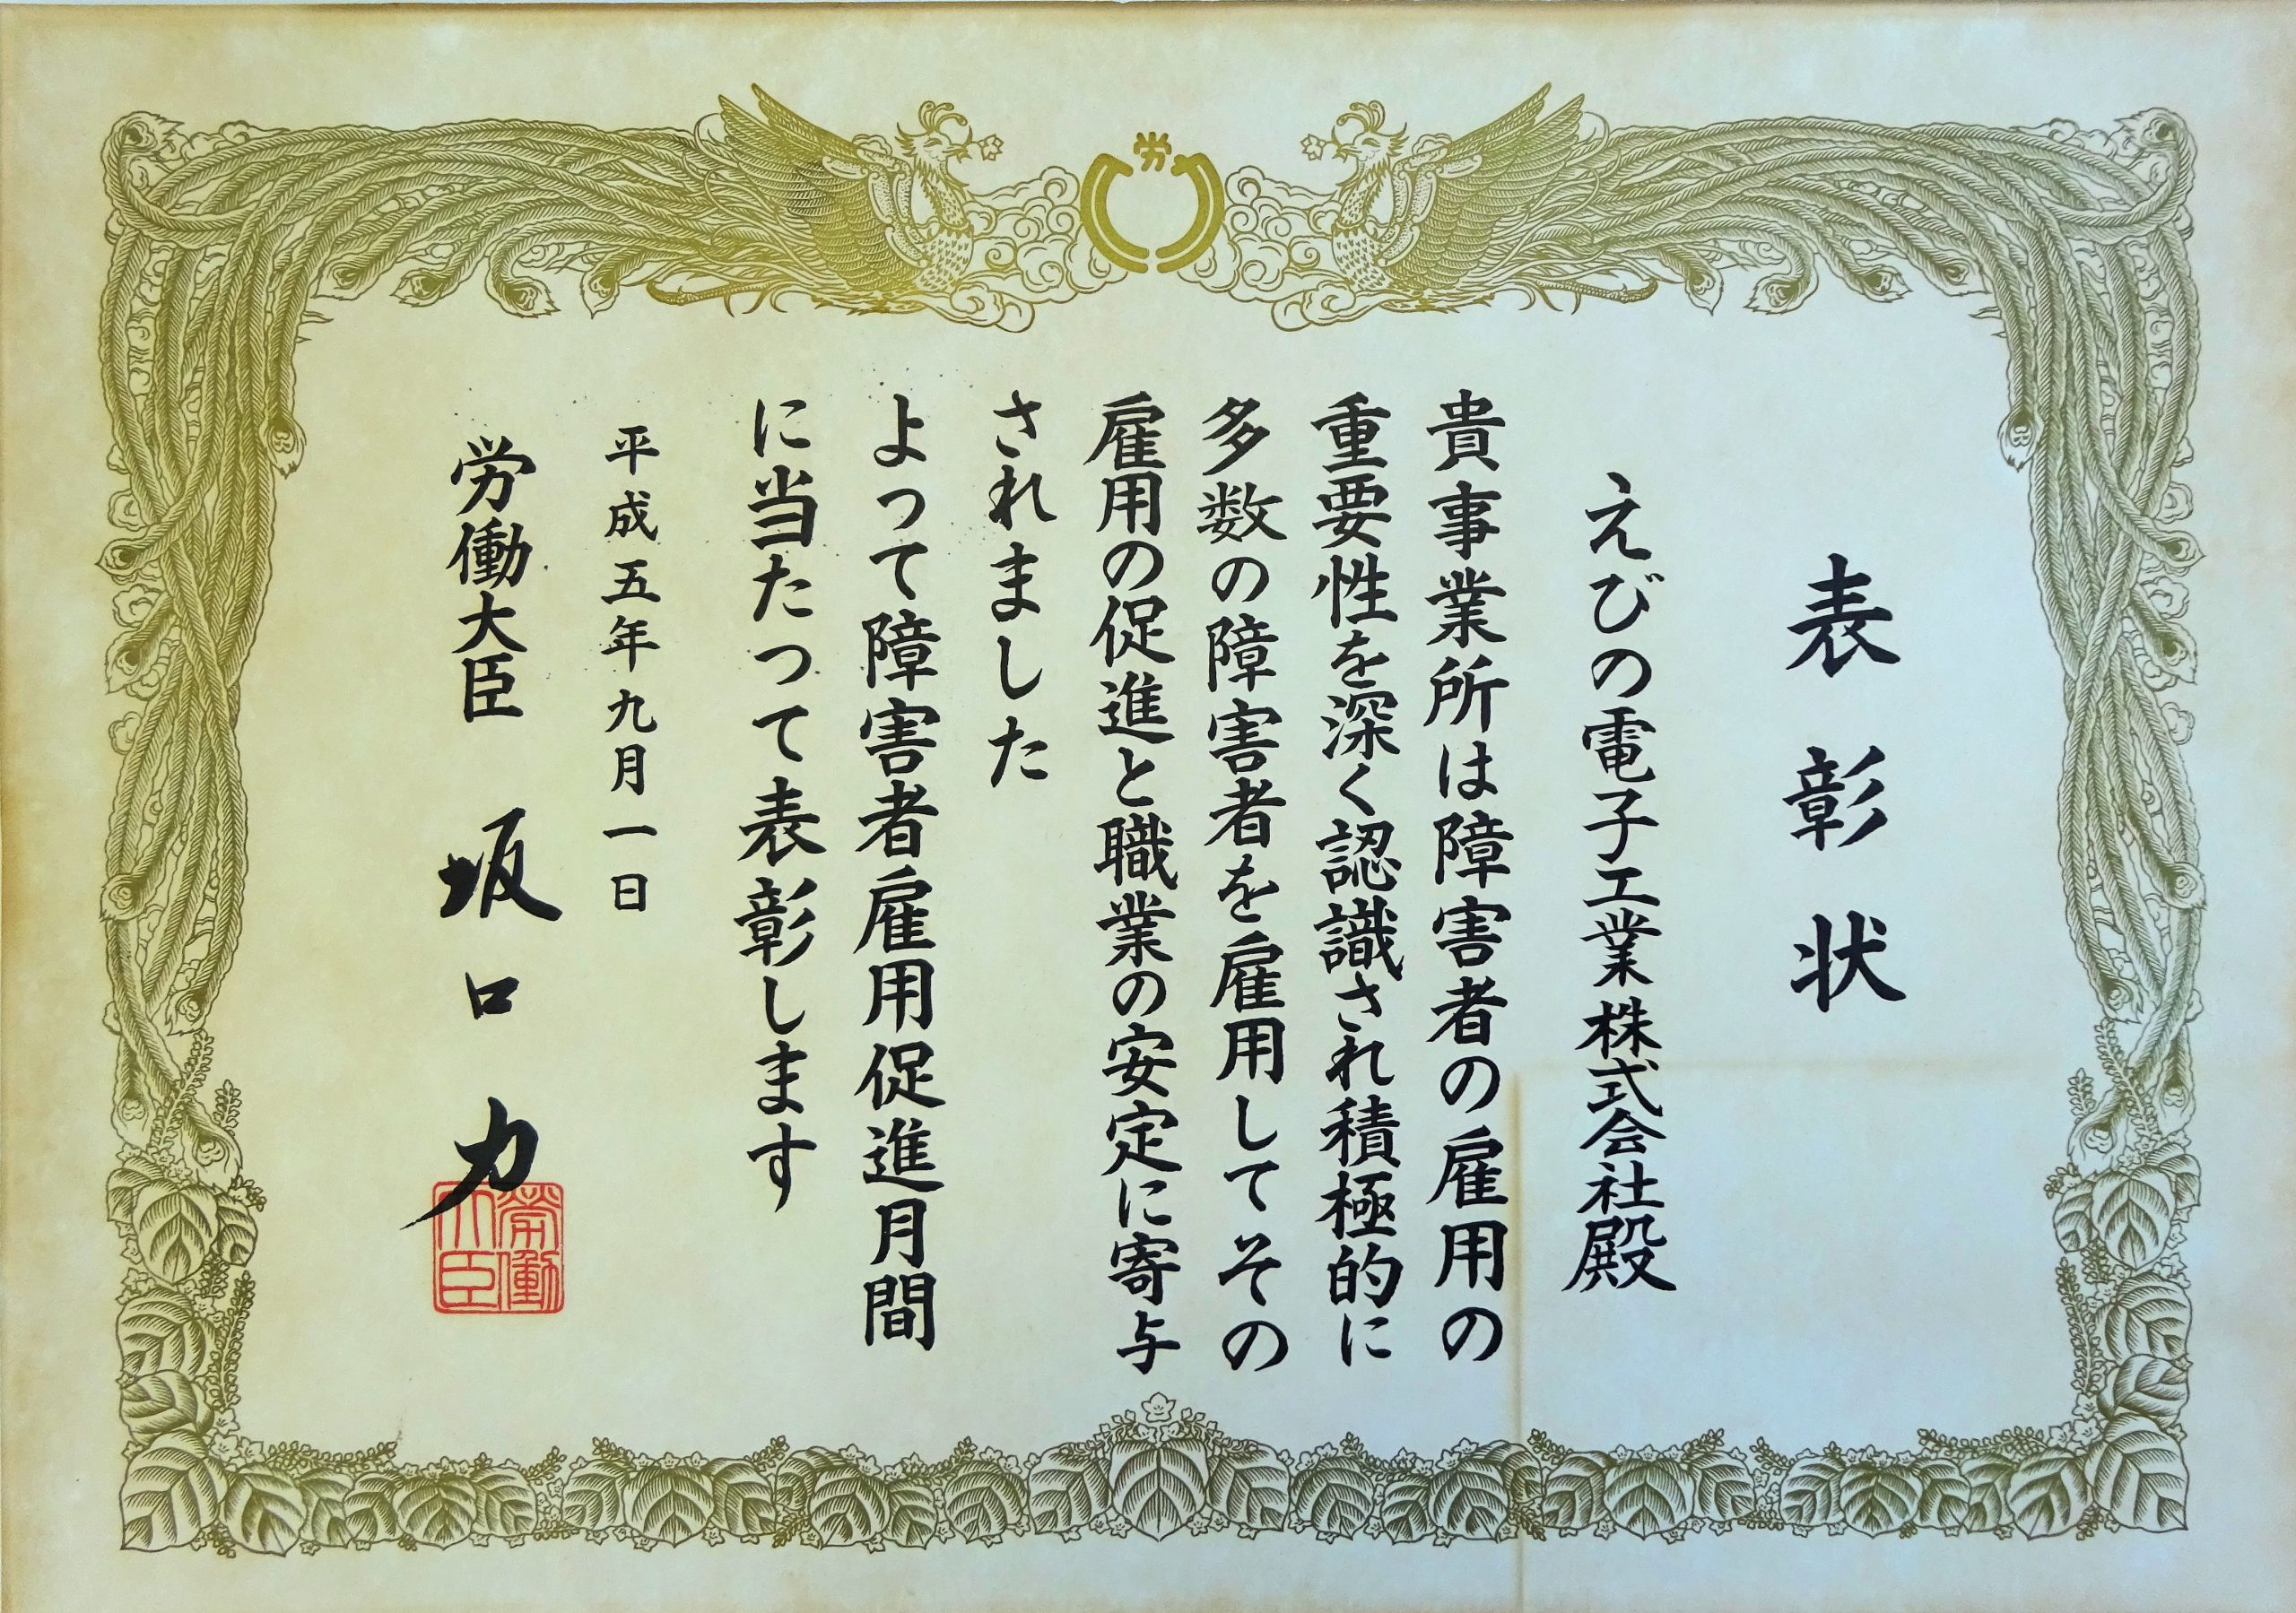 労
表彰状
えびの電子工業株式会社殿
貴事業所は障害者の雇用の
重要性を深く認識され積極的に
多数の障害者を雇用してその
雇用の促進と職業の安定に寄与
されました
よって障害者雇用促進月間
に当たつて表彰します
平成五年九月一日
労働大臣 坂口力
労働
大臣